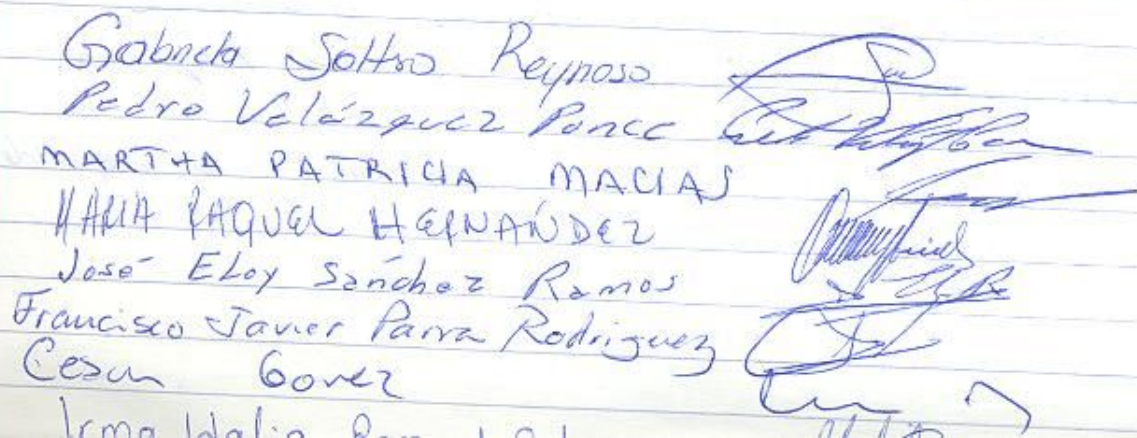 Gabriela Soltro Reynoso
Pedro Velázquez Ponce
MARTHA PATRICIA MACIAS
MARIA RAQUEL HERNÁNDEZ
José Eloy Sánchez Ramos
Francisco Javier Parra Rodriguez
Cesar Gomez
Irma Idalia